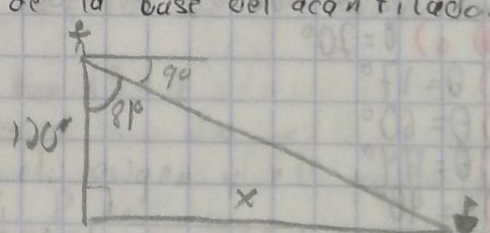 de la base del acantilado.
9°
81°
120
x